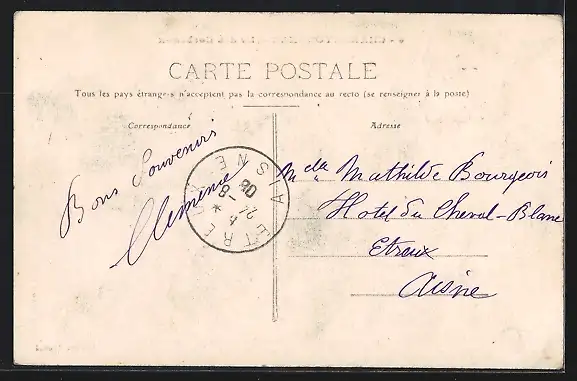 CARTE POSTALE
Tous les pays étrangers n'acceptent pas la correspondance au recto (se renseigner à la poste)
Correspondance
Adresse
Bons Souvenirs
Clemence
Mdlle Mathilde Bourgeois
Hotel du Cheval-Blanc
Etreux
Aisne
ETREUX
AISNE